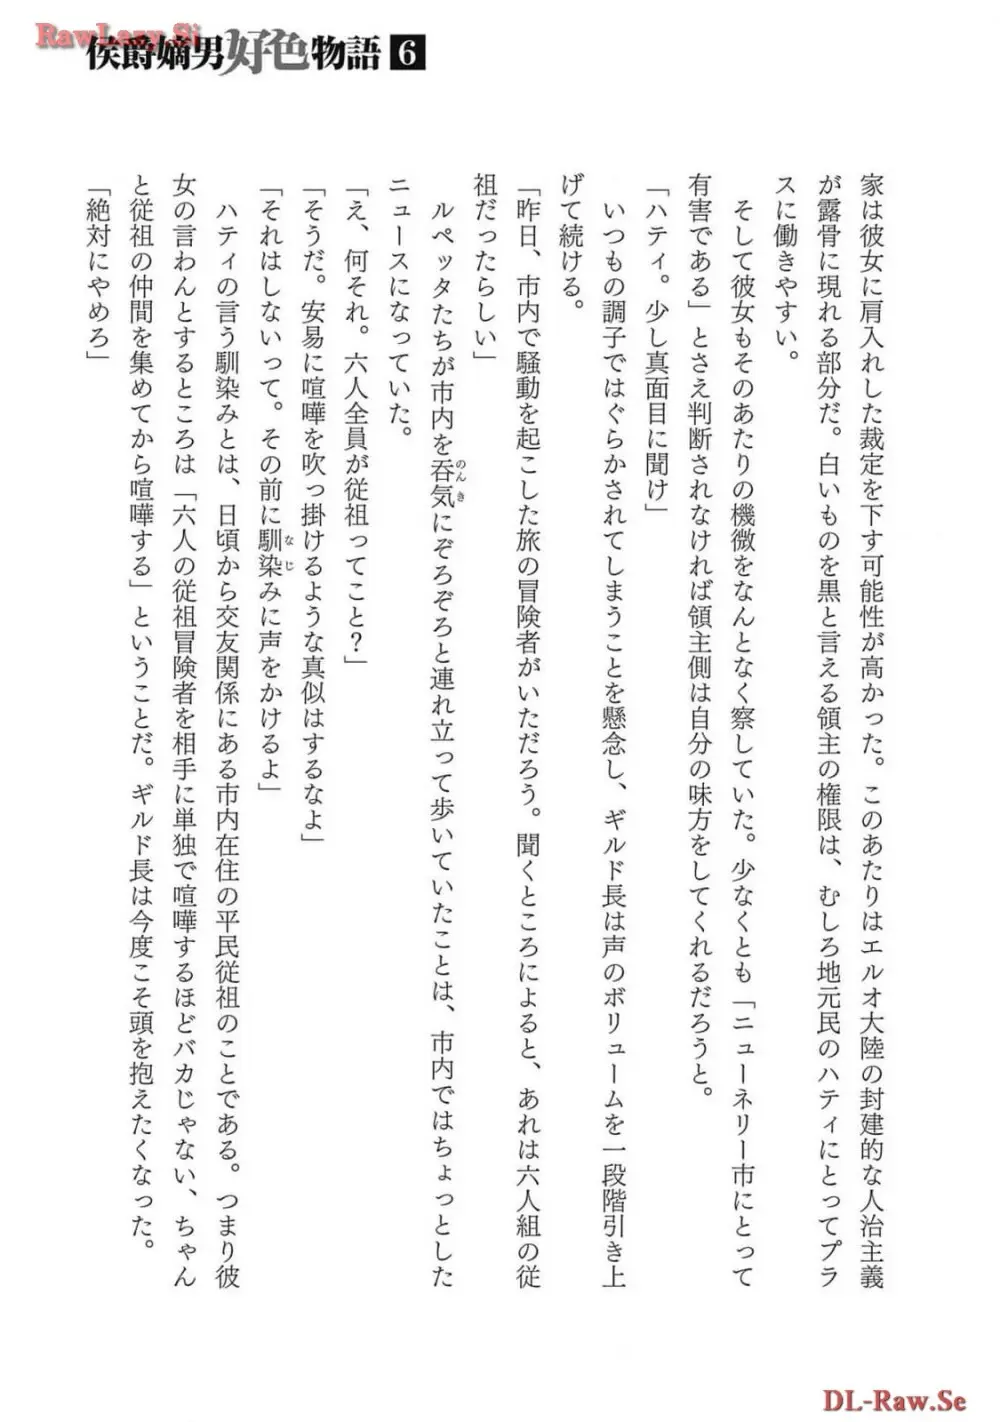 RawLazy.Si
侯爵嫡男好色物語 6
家は彼女に肩入れした裁定を下す可能性が高かった。このあたりはエルオ大陸の封建的な人治主義
が露骨に現れる部分だ。白いものを黒と言える領主の権限は、むしろ地元民のハティにとってプラ
スに働きやすい。
そして彼女もそのあたりの機微をなんとなく察していた。少なくとも「ニューネリー市にとって
有害である」とさえ判断されなければ領主側は自分の味方をしてくれるだろうと。
「ハティ。少し真面目に聞け」
いつもの調子ではぐらかされてしまうことを懸念し、ギルド長は声のボリュームを一段階引き上
げて続ける。
「昨日、市内で騒動を起こした旅の冒険者がいただろう。聞くところによると、あれは六人組の従
祖だったらしい」
ルペッタたちが市内を呑気にぞろぞろと連れ立って歩いていたことは、市内ではちょっとした
ニュースになっていた。
「え、何それ。六人全員が従祖ってこと？」
「そうだ。安易に喧嘩を吹っ掛けるような真似はするなよ」
「それはしないって。その前に馴染みに声をかけるよ」
ハティの言う馴染みとは、日頃から交友関係にある市内在住の平民従祖のことである。つまり彼
女の言わんとするところは「六人の従祖冒険者を相手に単独で喧嘩するほどバカじゃない、ちゃん
と従祖の仲間を集めてから喧嘩する」ということだ。ギルド長は今度こそ頭を抱えたくなった。
「絶対にやめろ」
DL-Raw.Se